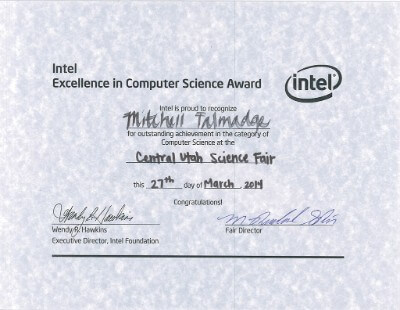 Intel
Excellence in Computer Science Award
intel
Intel is proud to recognize
Mitchell Talmadge
for outstanding achievement in the category of
Computer Science at the
Central Utah Science Fair
this 27th day of March, 2014
Congratulations!
Wendy Hawkins
Wendy Hawkins
Fair Director
Executive Director, Intel Foundation